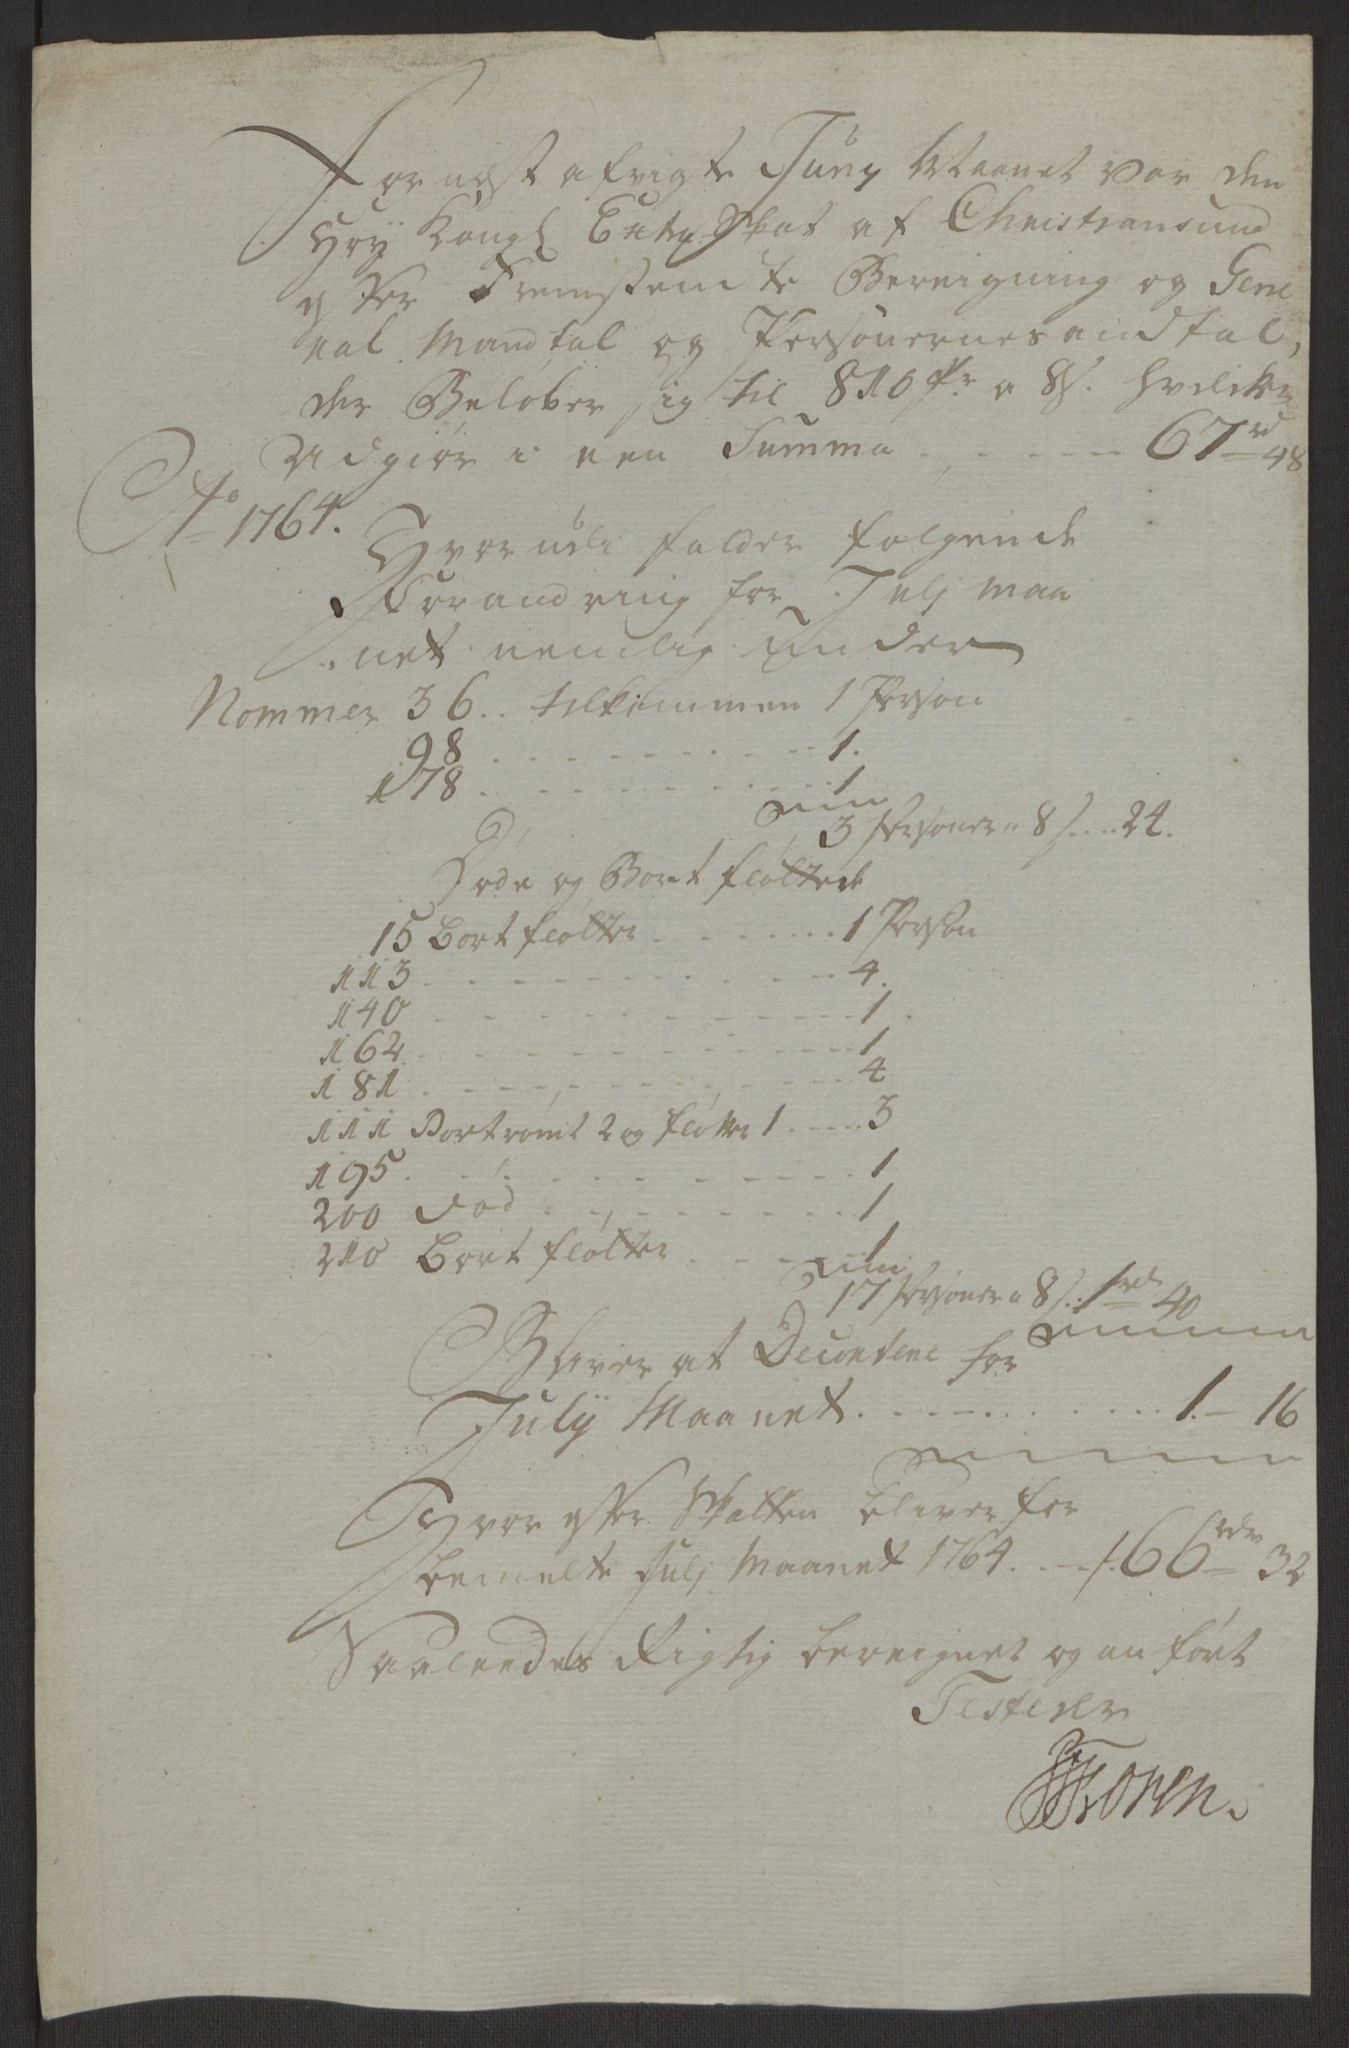 For nest afvigte Juny Maanet var den
Høy Kongl Extra Skat af Christiansund
efter Fremsendte Bereigning og Gene
ral Mandtal og Personernes andtal,
der Beløber sig til 810 Pr. a 8 s. hvilcke
Udgiør i een Summa . . . . . 67 rd 48
Ao 1764.
Hvor udi falder følgende
Forandring for Julj maa
net nemlig under
Nommer 36 . . tilkommen 1 Person
98 . . . . . . . . . 1.
178 . . . . . . . . . 1
3 Personer a 8 s . . . . 24.
Døde og Bort fløttede
15 Bort fløtter . . . . . . . 1 Person
113 . . . . . . . . . 4.
140 . . . . . . . . . 1
162 . . . . . . . . . 1
181 . . . . . . . . . 4
111 Bortrømt 2 og fløtter 1 . . . . 3
195 . . . . . . . . . 1
200 død . . . . . . . 1
210 Bort fløtter . . . . 1
17 Personer a 8 s . . 1 rd 40
Bliver at Decortere for
Julij Maanet . . . . . . . . . 1 - 16
Hvor efter Skatten bliver for
bemelte Julj Maanet 1764 . . - /: 66 rdr 32
Saaleedes Rigtig bereignet og an ført
Testerer